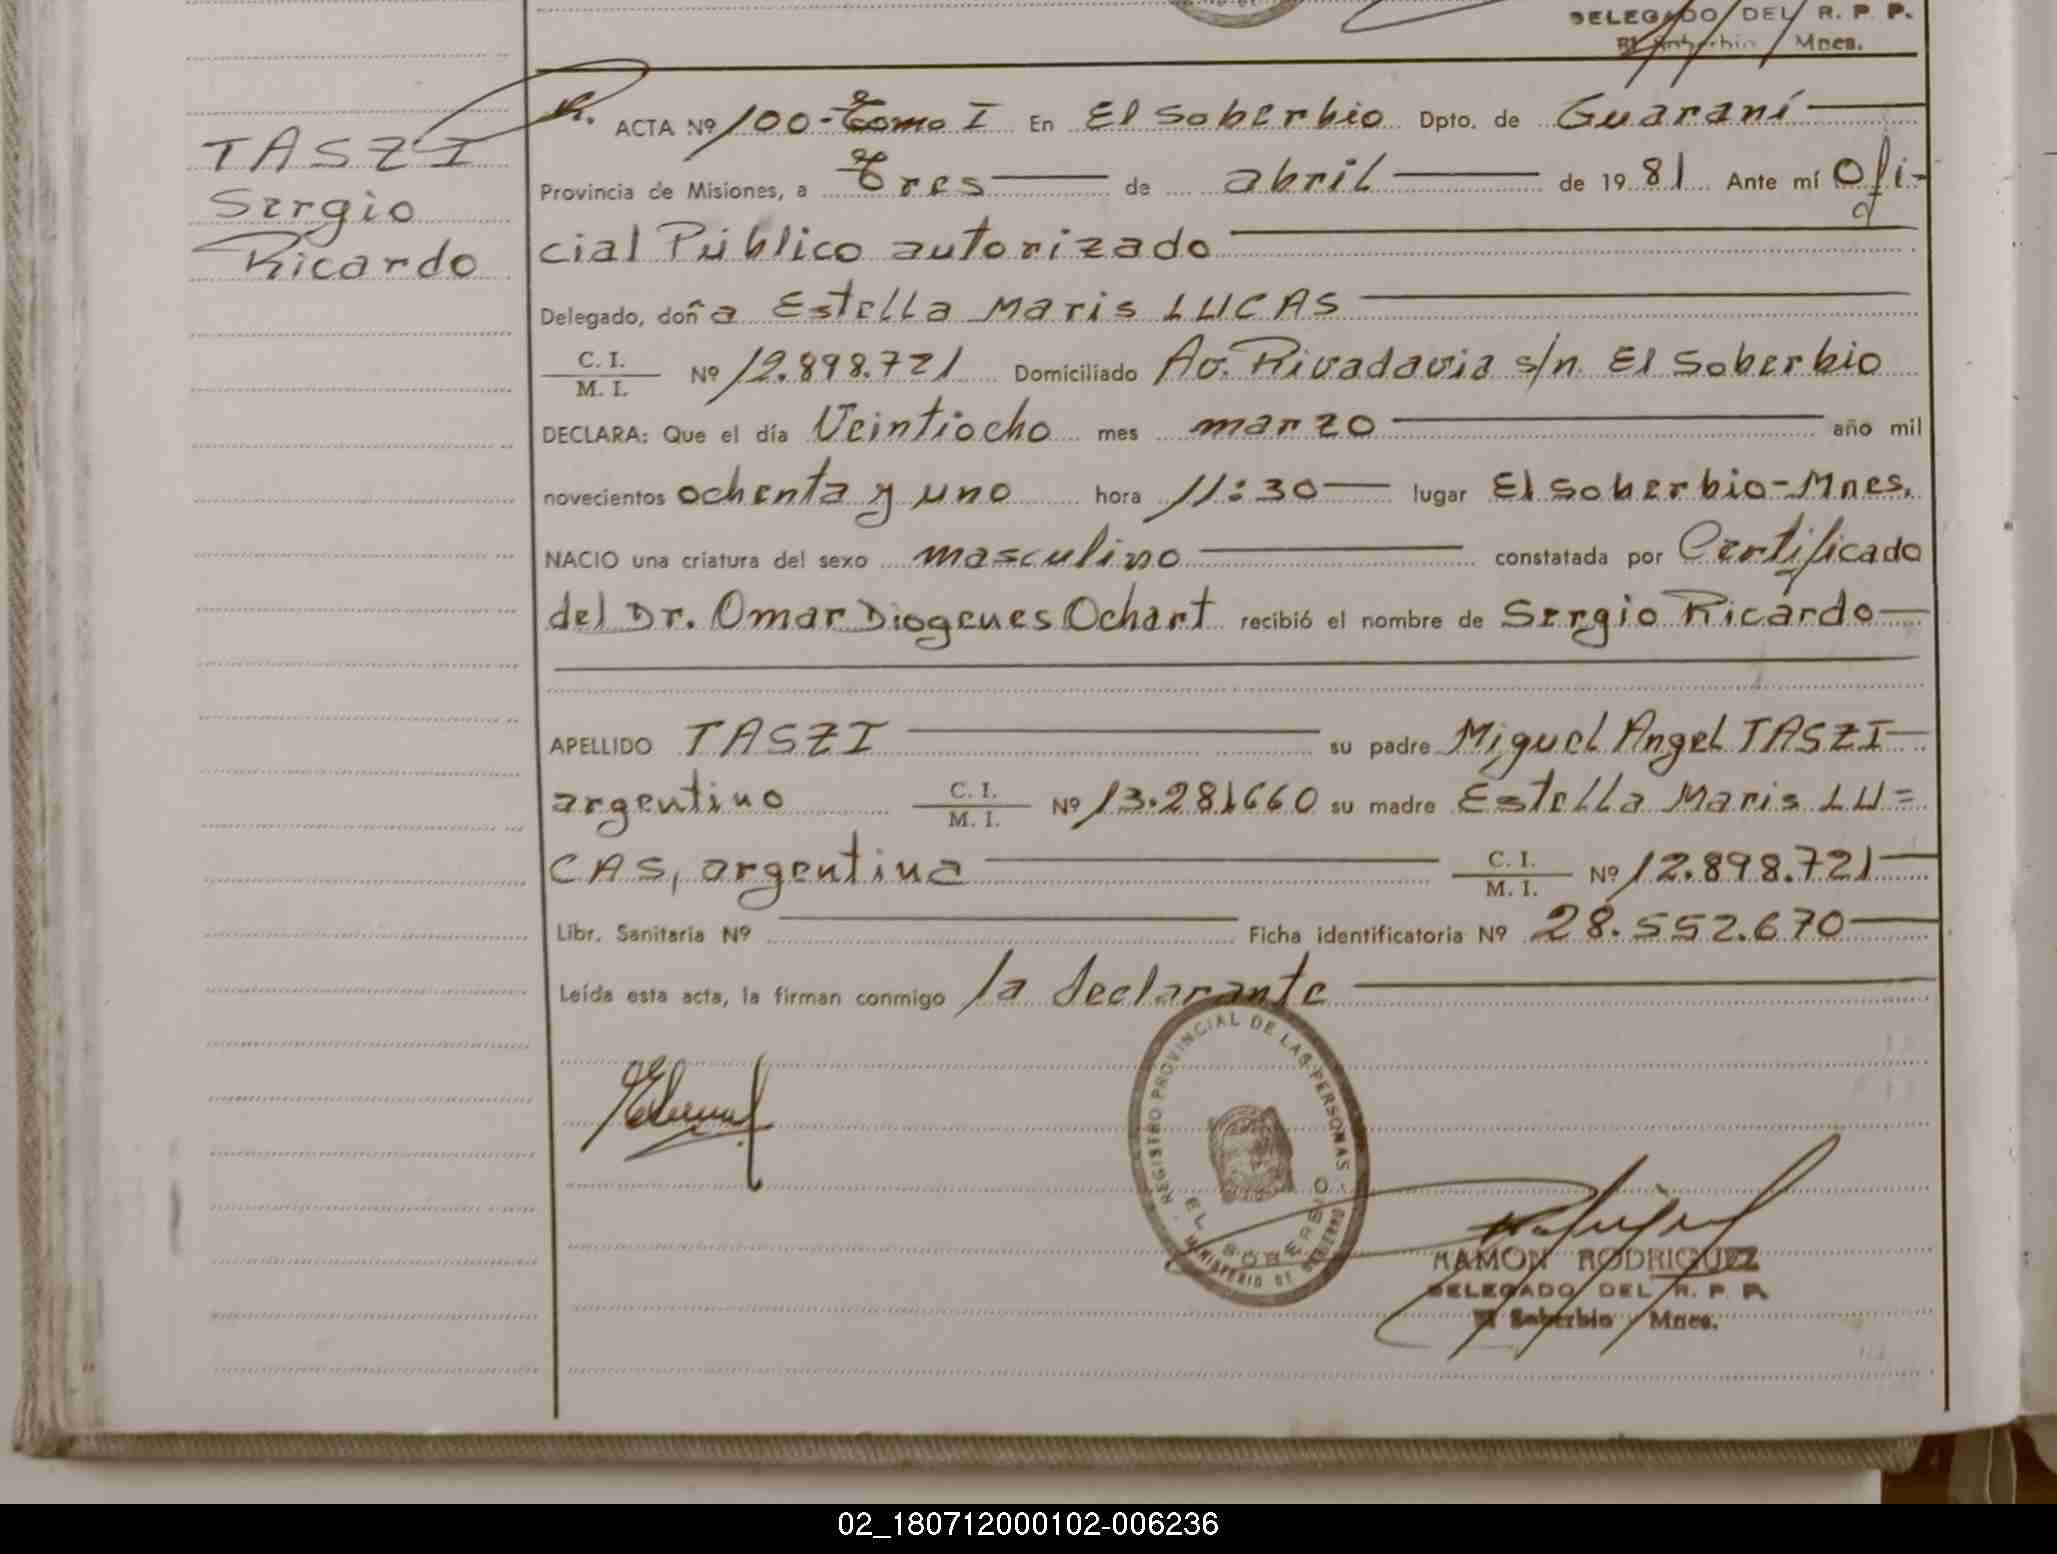 DELEGADO DEL R. P. P.
El Soberbio Mnes.
TASZI
Sergio
Ricardo
ACTA Nº 100-Tomo I En El Soberbio Dpto. de Guaraní
Provincia de Misiones, a Tres de abril de 1981 Ante mí Ofi-
cial Público autorizado
Delegado, doña Estella Maris LUCAS
C. I.
M. I. Nº 12.898.721 Domiciliado Av. Rivadavia s/n El Soberbio
DECLARA: Que el día Veintiocho mes marzo año mil
novecientos ochenta y uno hora 11:30 lugar El Soberbio-Mnes.
NACIO una criatura del sexo masculino constatada por Certificado
del Dr. Omar Diogenes Ochart recibió el nombre de Sergio Ricardo
APELLIDO TASZI su padre Miguel Angel TASZI
argentino C. I. M. I. Nº 13.281660 su madre Estella Maris LU=
CAS, argentina C. I. M. I. Nº 12.898.721
Libr. Sanitaria Nº Ficha identificatoria Nº 28.552.670
Leída esta acta, la firman conmigo la declarante
REGISTRO PROVINCIAL DE LAS PERSONAS
EL SOBERBIO
MINISTERIO DE GOBIERNO
RAMON RODRIGUEZ
DELEGADO DEL R. P. P.
El Soberbio Mnes.
02_180712000102-006236